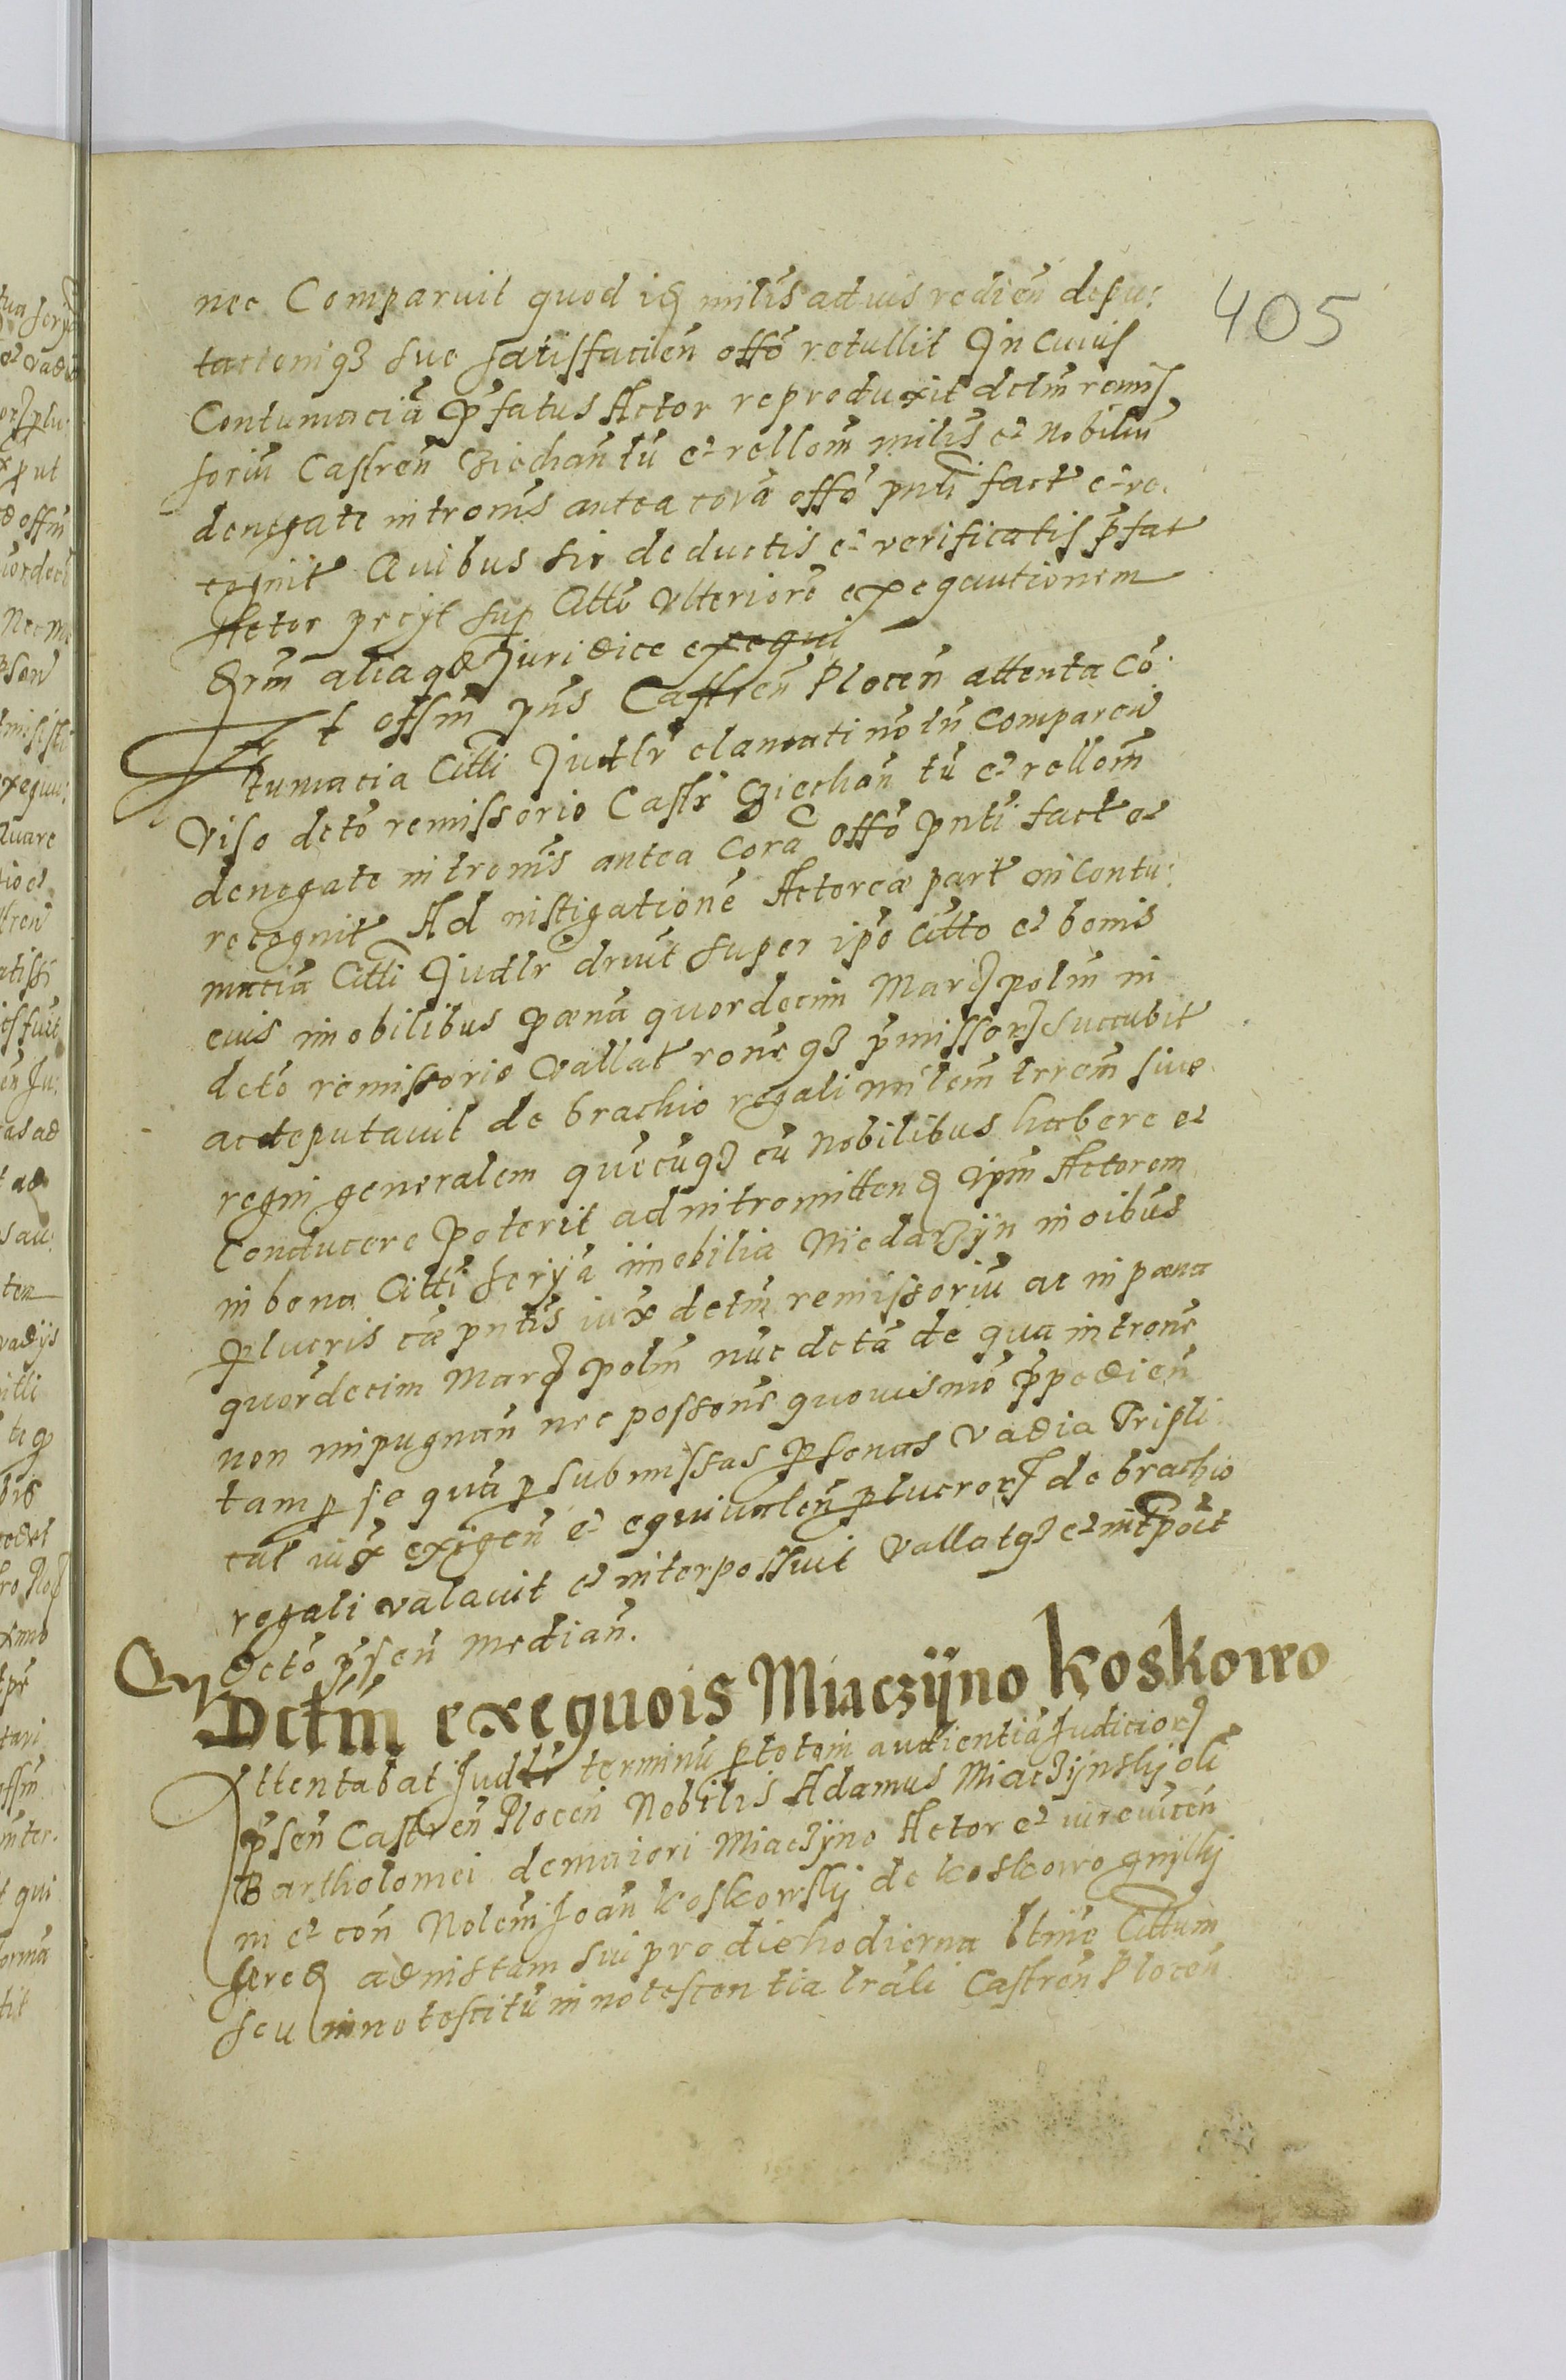 405
nec Comparuit quod id milis ad uis redien depu:
tationiq3 sue satisfacien offo retullit In Cuius
Contumaciā pfatus Actor reproduxit dctm remis
soriū Castren Cziechan tū et rellom milis et nobiliū
denegate intromis antea corā offo pnti fact et re.
cognit Quibus sic deductis et verificatis pfat
Actor pecyt sup Citto Ulteriore exegautionem
drm aliaq3 Juridice exequi
Et offm pns Castren Plocen attenta Co:
tumacia Citti Judlr clamati no tn Comparen
Viso dcto remissorio Castr Cziechan tū et rellom
denegate intromis antea Corā offo pnti fact et
recognit Ad instigatione Actoreæ part in Contu:
matiā Citti Judlr driut super ipo Citto et bonis
euis imobilibus pœnā quordecim Mar polm in
dcto remissorio Vallat rone q3 pmissor Succubit
ac deputauit de brachio regali milem trrem siue
regni generalem quecuq3 cū Nobilibus habere et
Conducere poterit ad intromitten ipm Actorem
in bona Citti imobilia Niedarzÿn in oibus
plucris cā pntis iux dctm remissoriū ac in pœna
quordecim Mar polm nūc dctā de qua introne
non impugnan nec possone quouismo ppedien
tam p se quā p submissas psonas Vadia Tripli
cat iux exigen et equiualen plucror de brachio
regali valauit et interpossuit Vallatq3 et intpoit
Dcto psen median.
Dctm exequois Miaczÿno Koskowo
Attentabat Judlr terminū p totam audientiā Judicior
psen Castren Plocen Nobilis Adamus Miaczÿnskÿ oli
Bartholomei de maiori Miaczÿno Actor et iureuicen
in et con Nolem Joan Koskowskÿ de Koskowo
hered ad instam sui pro die hodierna ltime Cittum
seu innotescitū innotescentia lrali Castren Plocen